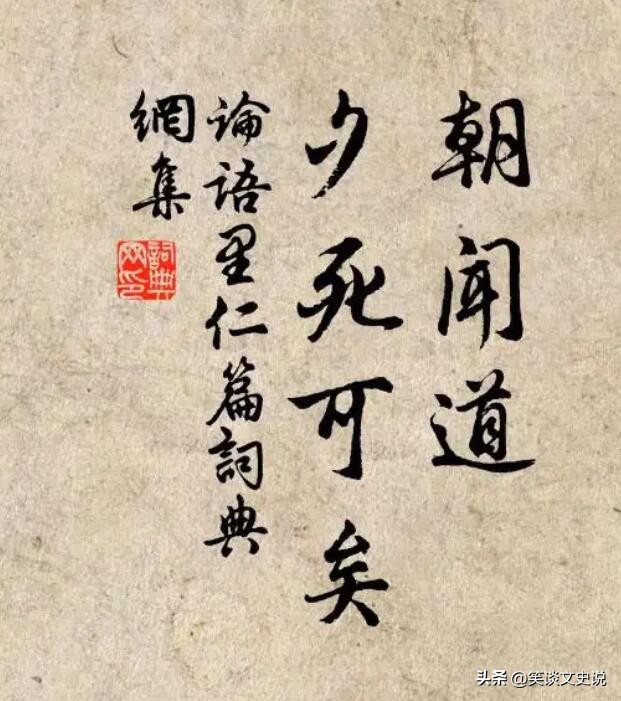 朝闻道
夕死可矣
論語里仁篇詞典
網集
詞典
网印
头条 @笑谈文史说